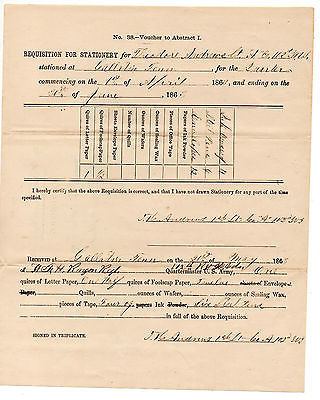 No. 38.—Voucher to Abstract I.
REQUISITION FOR STATIONERY for Theodore Andrews
stationed at Gallatin Tenn for the Quarter
commencing on the 1st of April 186 and ending on the
of June 186
Quires of Letter Paper
Quires of Foolscap Paper
Sheets Envelope Paper
Number of Quills
Ounces of Wafers
Ounces of Sealing Wax
Pieces of Office Tape
Papers of Ink Powder
1
I hereby certify that the above Requisition is correct, and that I have not drawn Stationery for any part of the time
specified.
Andrews 1st Lt Co A
RECEIVED at Gallatin Tenn on the of May 186
of Quartermaster U. S. Army, One
quires of Letter Paper, One half quires of Foolscap Paper, Twelve sheets of Envelope
Paper, Quills, ounces of Wafers, ounces of Sealing Wax,
pieces of Tape, Four oz papers Ink Powder, six Steel Pens
in full of the above Requisition.
Andrews 1st Lt Co A
SIGNED IN TRIPLICATE.